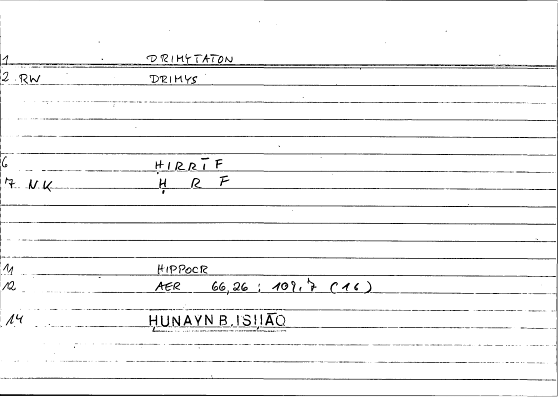 1 DRIMYTATON
2 RW DRIMYS
6 ḤIRRĪF
7 N.K Ḥ R F
11 HIPPOCR
12 AER 66,26 : 109.7 (16)
14 ḤUNAYN B. ISḤĀQ